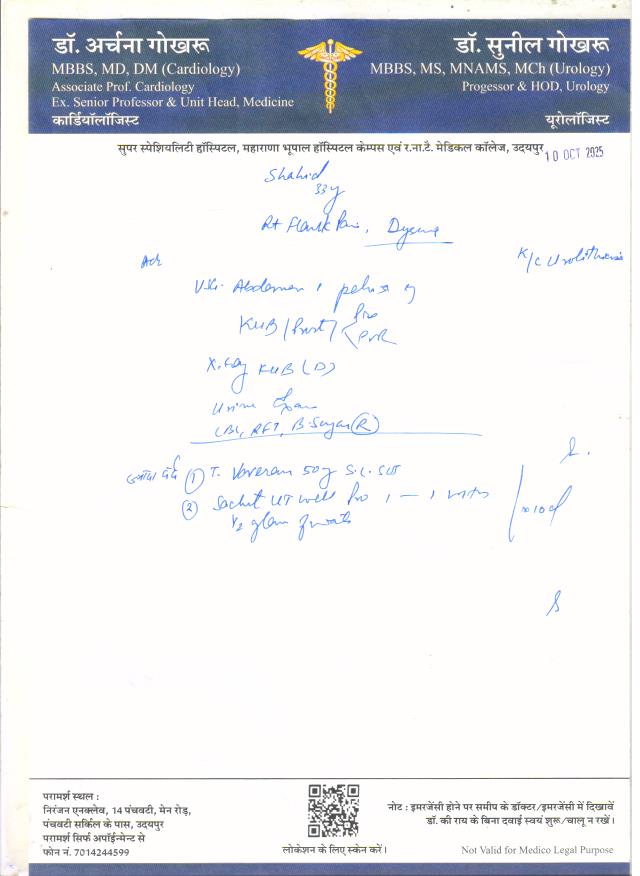 डॉ. अर्चना गोखरू
MBBS, MD, DM (Cardiology)
Associate Prof. Cardiology
Ex. Senior Professor & Unit Head, Medicine
कार्डियॉलॉजिस्ट
डॉ. सुनील गोखरू
MBBS, MS, MNAMS, MCh (Urology)
Progessor & HOD, Urology
यूरोलॉजिस्ट
सुपर स्पेशियलिटी हॉस्पिटल, महाराणा भूपाल हॉस्पिटल केम्पस एवं र.ना.टै. मेडिकल कॉलेज, उदयपुर
10 OCT 2025
Shahid
33y
Rt Flank Pain,
K/C Urolithiasis
Adv
Abdomen pelvis
KUB / Pre
PVR
X-Ray KUB (D)
Urine
CBC, RFT, B. Sugar (R)
① T. 50mg
② Sachet 1 — 1
1/2 glass of water
x 10d
परामर्श स्थल :
निरंजन एनक्लेव, 14 पंचवटी, मेन रोड़,
पंचवटी सर्किल के पास, उदयपुर
परामर्श सिर्फ अपॉईन्मेन्ट से
फोन नं. 7014244599
लोकेशन के लिए स्केन करें।
नोट : इमरजेंसी होने पर समीप के डॉक्टर/इमरजेंसी में दिखावें
डॉ. की राय के बिना दवाई स्वयं शुरू/चालू न रखें।
Not Valid for Medico Legal Purpose